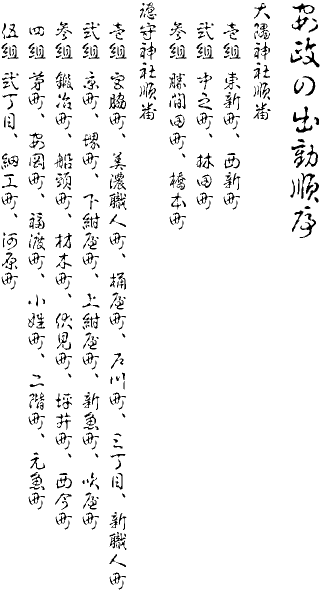 安政の出動順序
大隅神社順番
壱組 東新町、西新町
弐組 中之町、林田町
参組 勝間田町、橋本町
徳守神社順番
壱組 宮脇町、美濃職人町、桶屋町、戸川町、三丁目、新職人町
弐組 京町、堺町、下紺屋町、上紺屋町、新魚町、吹屋町
参組 鍛冶町、船頭町、材木町、伏見町、坪井町、西今町
四組 茅町、安岡町、福渡町、小姓町、二階町、元魚町
伍組 弐丁目、細工町、河原町